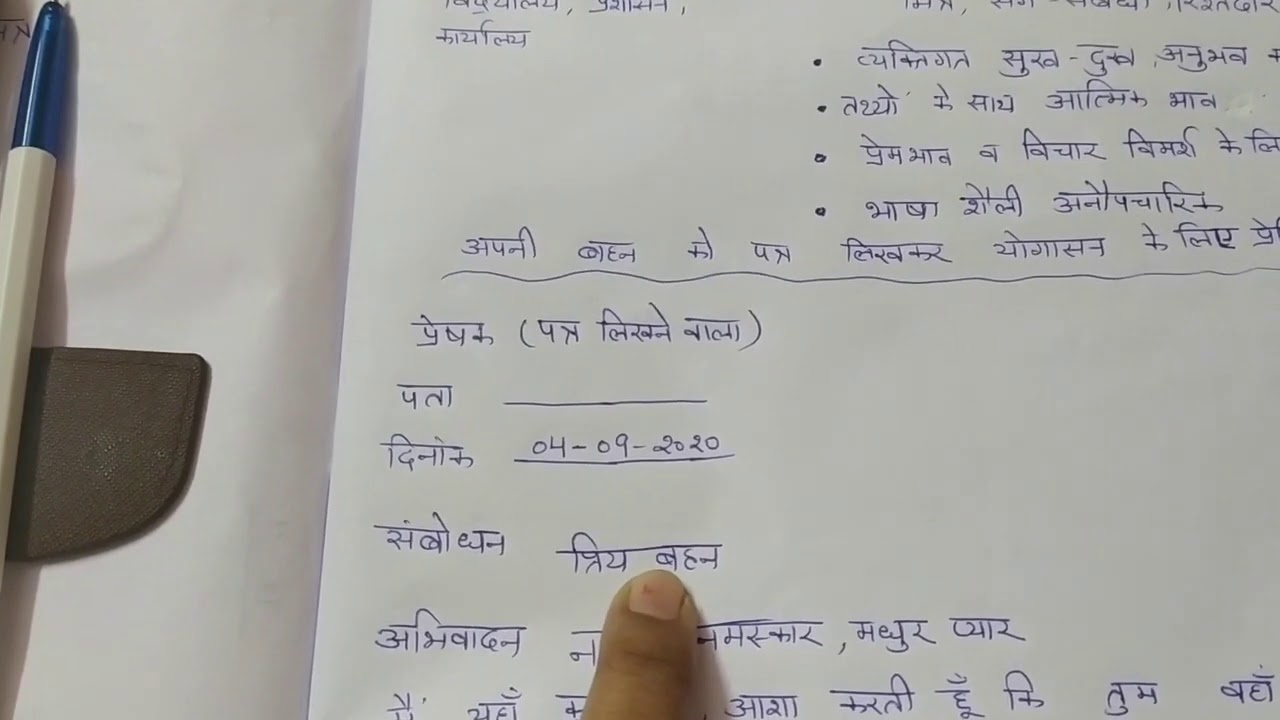 विद्यालय, प्रशासन,
कार्यालय
मित्र, सगे-संबंधी, रिश्तेदार
• व्यक्तिगत सुख-दुख, अनुभव
• तथ्यों के साथ आत्मिक भाव
• प्रेमभाव व विचार विमर्श के
• भाषा शैली अनौपचारिक
अपनी बहन को पत्र लिखकर योगासन के लिए
प्रेषक (पत्र लिखने वाला)
पता
दिनांक 04-09-२०२०
संबोधन प्रिय बहन
अभिवादन नमस्कार, मधुर प्यार
मैं यहाँ आशा करती हूँ कि तुम वहाँ